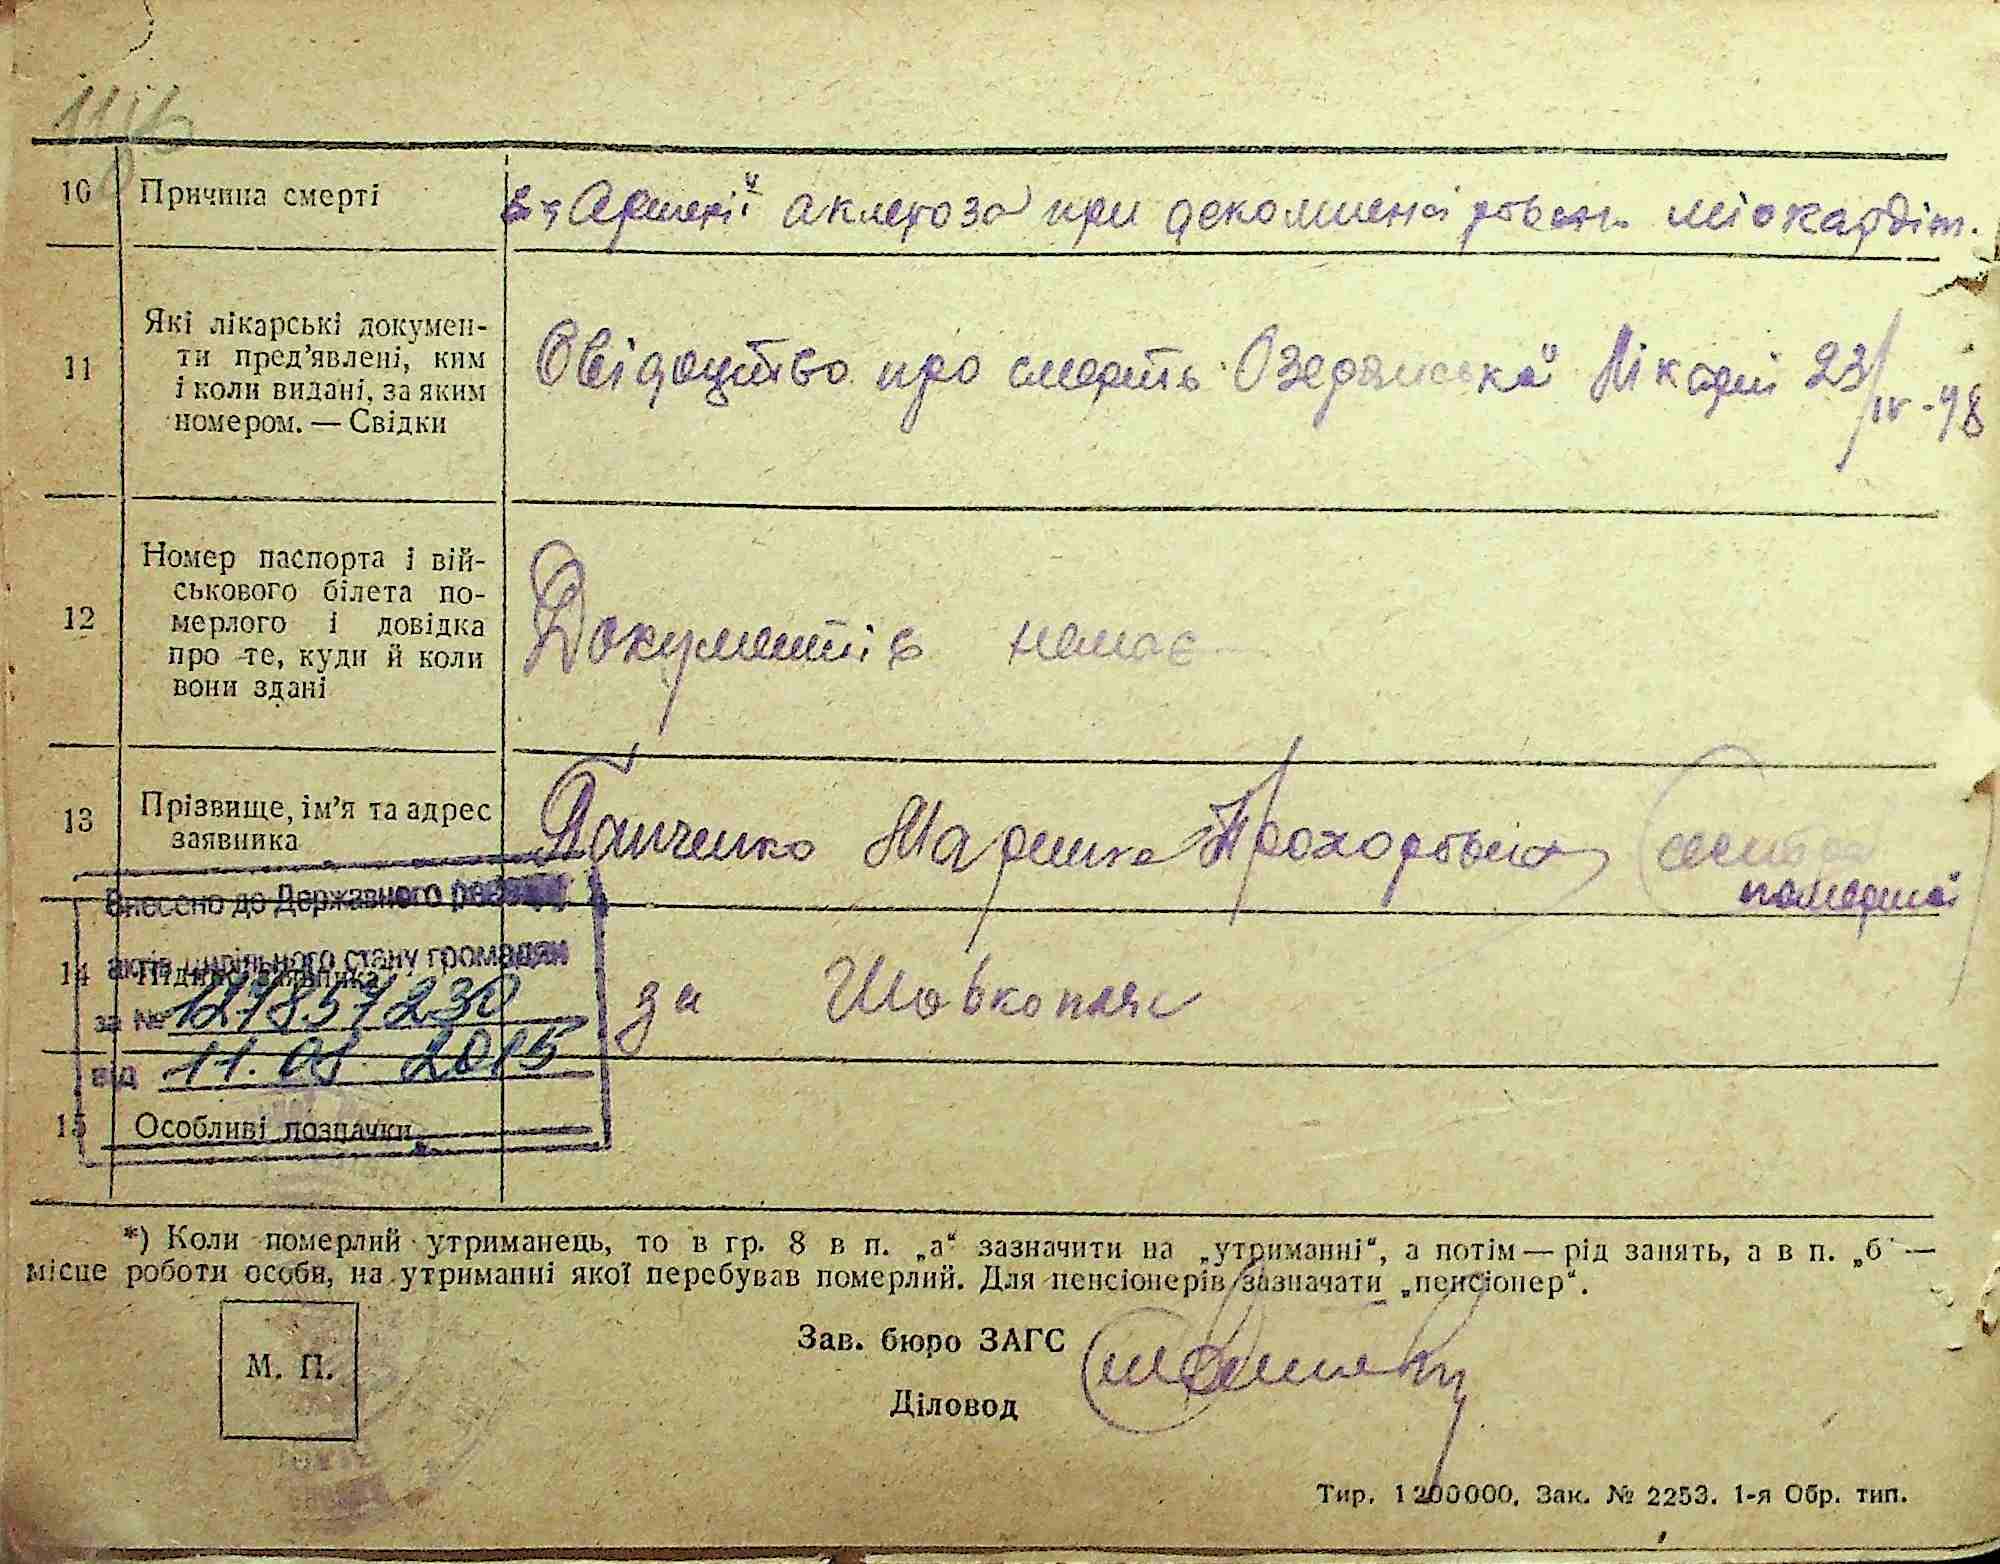 10 Причина смерті
при міокардіт.
11 Які лікарські докумен-
ти пред'явлені, ким
і коли видані, за яким
номером. — Свідки
Свідоцтво про смерть Лікарні 23/IV-48
12 Номер паспорта і вій-
ськового білета по-
мерлого і довідка
про те, куди й коли
вони здані
Документів немає
13 Прізвище, ім'я та адрес
заявника
Панченко Марина Прохоровна
помершої
Внесено до Державного реєстру
актів цивільного стану громадян
14 Підпис заявника
за Шовкопляс
за № 127857230
від 11.01 2015
15 Особливі позначки
*) Коли померлий утриманець, то в гр. 8 в п. „а“ зазначити на „утриманні“, а потім — рід занять, а в п. „б“ —
місце роботи особи, на утриманні якої перебував померлий. Для пенсіонерів зазначати „пенсіонер“.
М. П.
Зав. бюро ЗАГС
Діловод
Тир. 1200000. Зак. № 2253. 1-я Обр. тип.